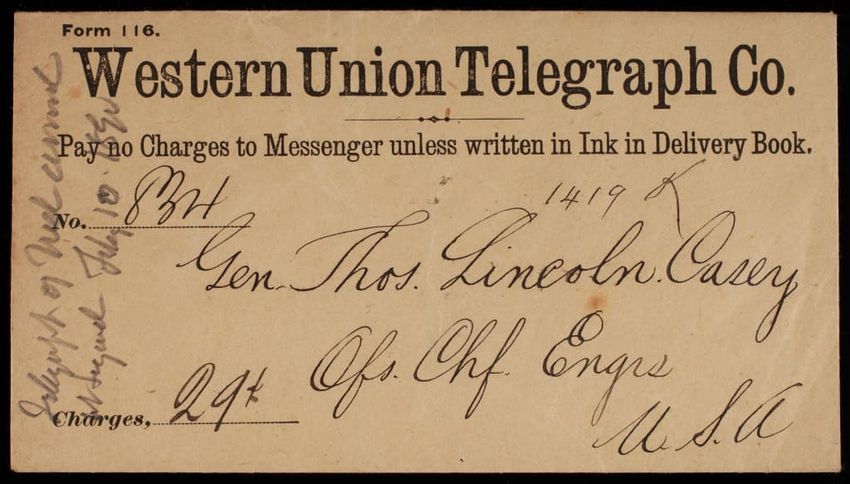 Form 116.
Western Union Telegraph Co.
Pay no Charges to Messenger unless written in Ink in Delivery Book.
1419 K
No.
Gen. Thos. Lincoln. Casey
Ofs. Chf. Engrs
U.S.A
Charges, 29¢
Telegraph of
July 10